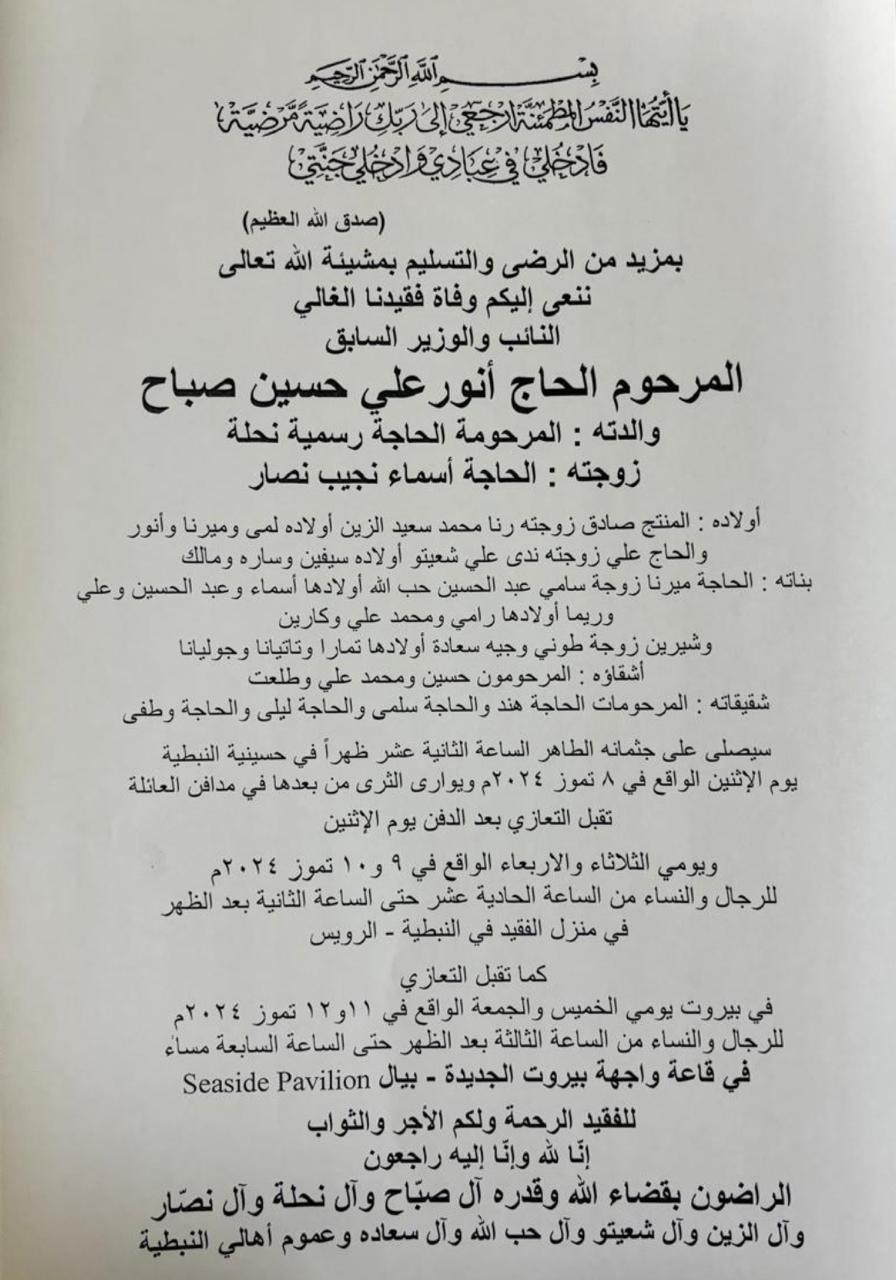 بسم الله الرحمن الرحيم
يَا أَيَّتُهَا النَّفْسُ المُطْمَئِنَّة ارْجِعِي إِلَى رَبِّكِ رَاضِيَةً مَّرْضِيَّة
فَادْخُلِي فِي عِبَادِي وَادْخُلِي جَنَّتِي
(صدق الله العظيم)
بمزيد من الرضى والتسليم بمشيئة الله تعالى
ننعى إليكم وفاة فقيدنا الغالي
النائب والوزير السابق
المرحوم الحاج أنور علي حسين صباح
والدته : المرحومة الحاجة رسمية نحلة
زوجته : الحاجة أسماء نجيب نصار
أولاده : المنتج صادق زوجته رنا محمد سعيد الزين أولاده لمى وميرنا وأنور
والحاج علي زوجته ندى علي شعيتو أولاده سيفين وساره ومالك
بناته : الحاجة ميرنا زوجة سامي عبد الحسين حب الله أولادها أسماء وعبد الحسين وعلي
وريما أولادها رامي ومحمد علي وكارين
وشيرين زوجة طوني وجيه سعادة أولادها تمارا وتاتيانا وجوليانا
أشقاؤه : المرحومون حسين ومحمد علي وطلعت
شقيقاته : المرحومات الحاجة هند والحاجة سلمى والحاجة ليلى والحاجة وطفى
سيصلى على جثمانه الطاهر الساعة الثانية عشر ظهراً في حسينية النبطية
يوم الإثنين الواقع في ٨ تموز ٢٠٢٤م ويوارى الثرى من بعدها في مدافن العائلة
تقبل التعازي بعد الدفن يوم الإثنين
ويومي الثلاثاء والاربعاء الواقع في ٩ و١٠ تموز ٢٠٢٤م
للرجال والنساء من الساعة الحادية عشر حتى الساعة الثانية بعد الظهر
في منزل الفقيد في النبطية - الرويس
كما تقبل التعازي
في بيروت يومي الخميس والجمعة الواقع في ١١و١٢ تموز ٢٠٢٤م
للرجال والنساء من الساعة الثالثة بعد الظهر حتى الساعة السابعة مساء
في قاعة واجهة بيروت الجديدة - بيال Seaside Pavilion
للفقيد الرحمة ولكم الأجر والثواب
إنّا لله وإنّا إليه راجعون
الراضون بقضاء الله وقدره آل صبّاح وآل نحلة وآل نصّار
وآل الزين وآل شعيتو وآل حب الله وآل سعاده وعموم أهالي النبطية